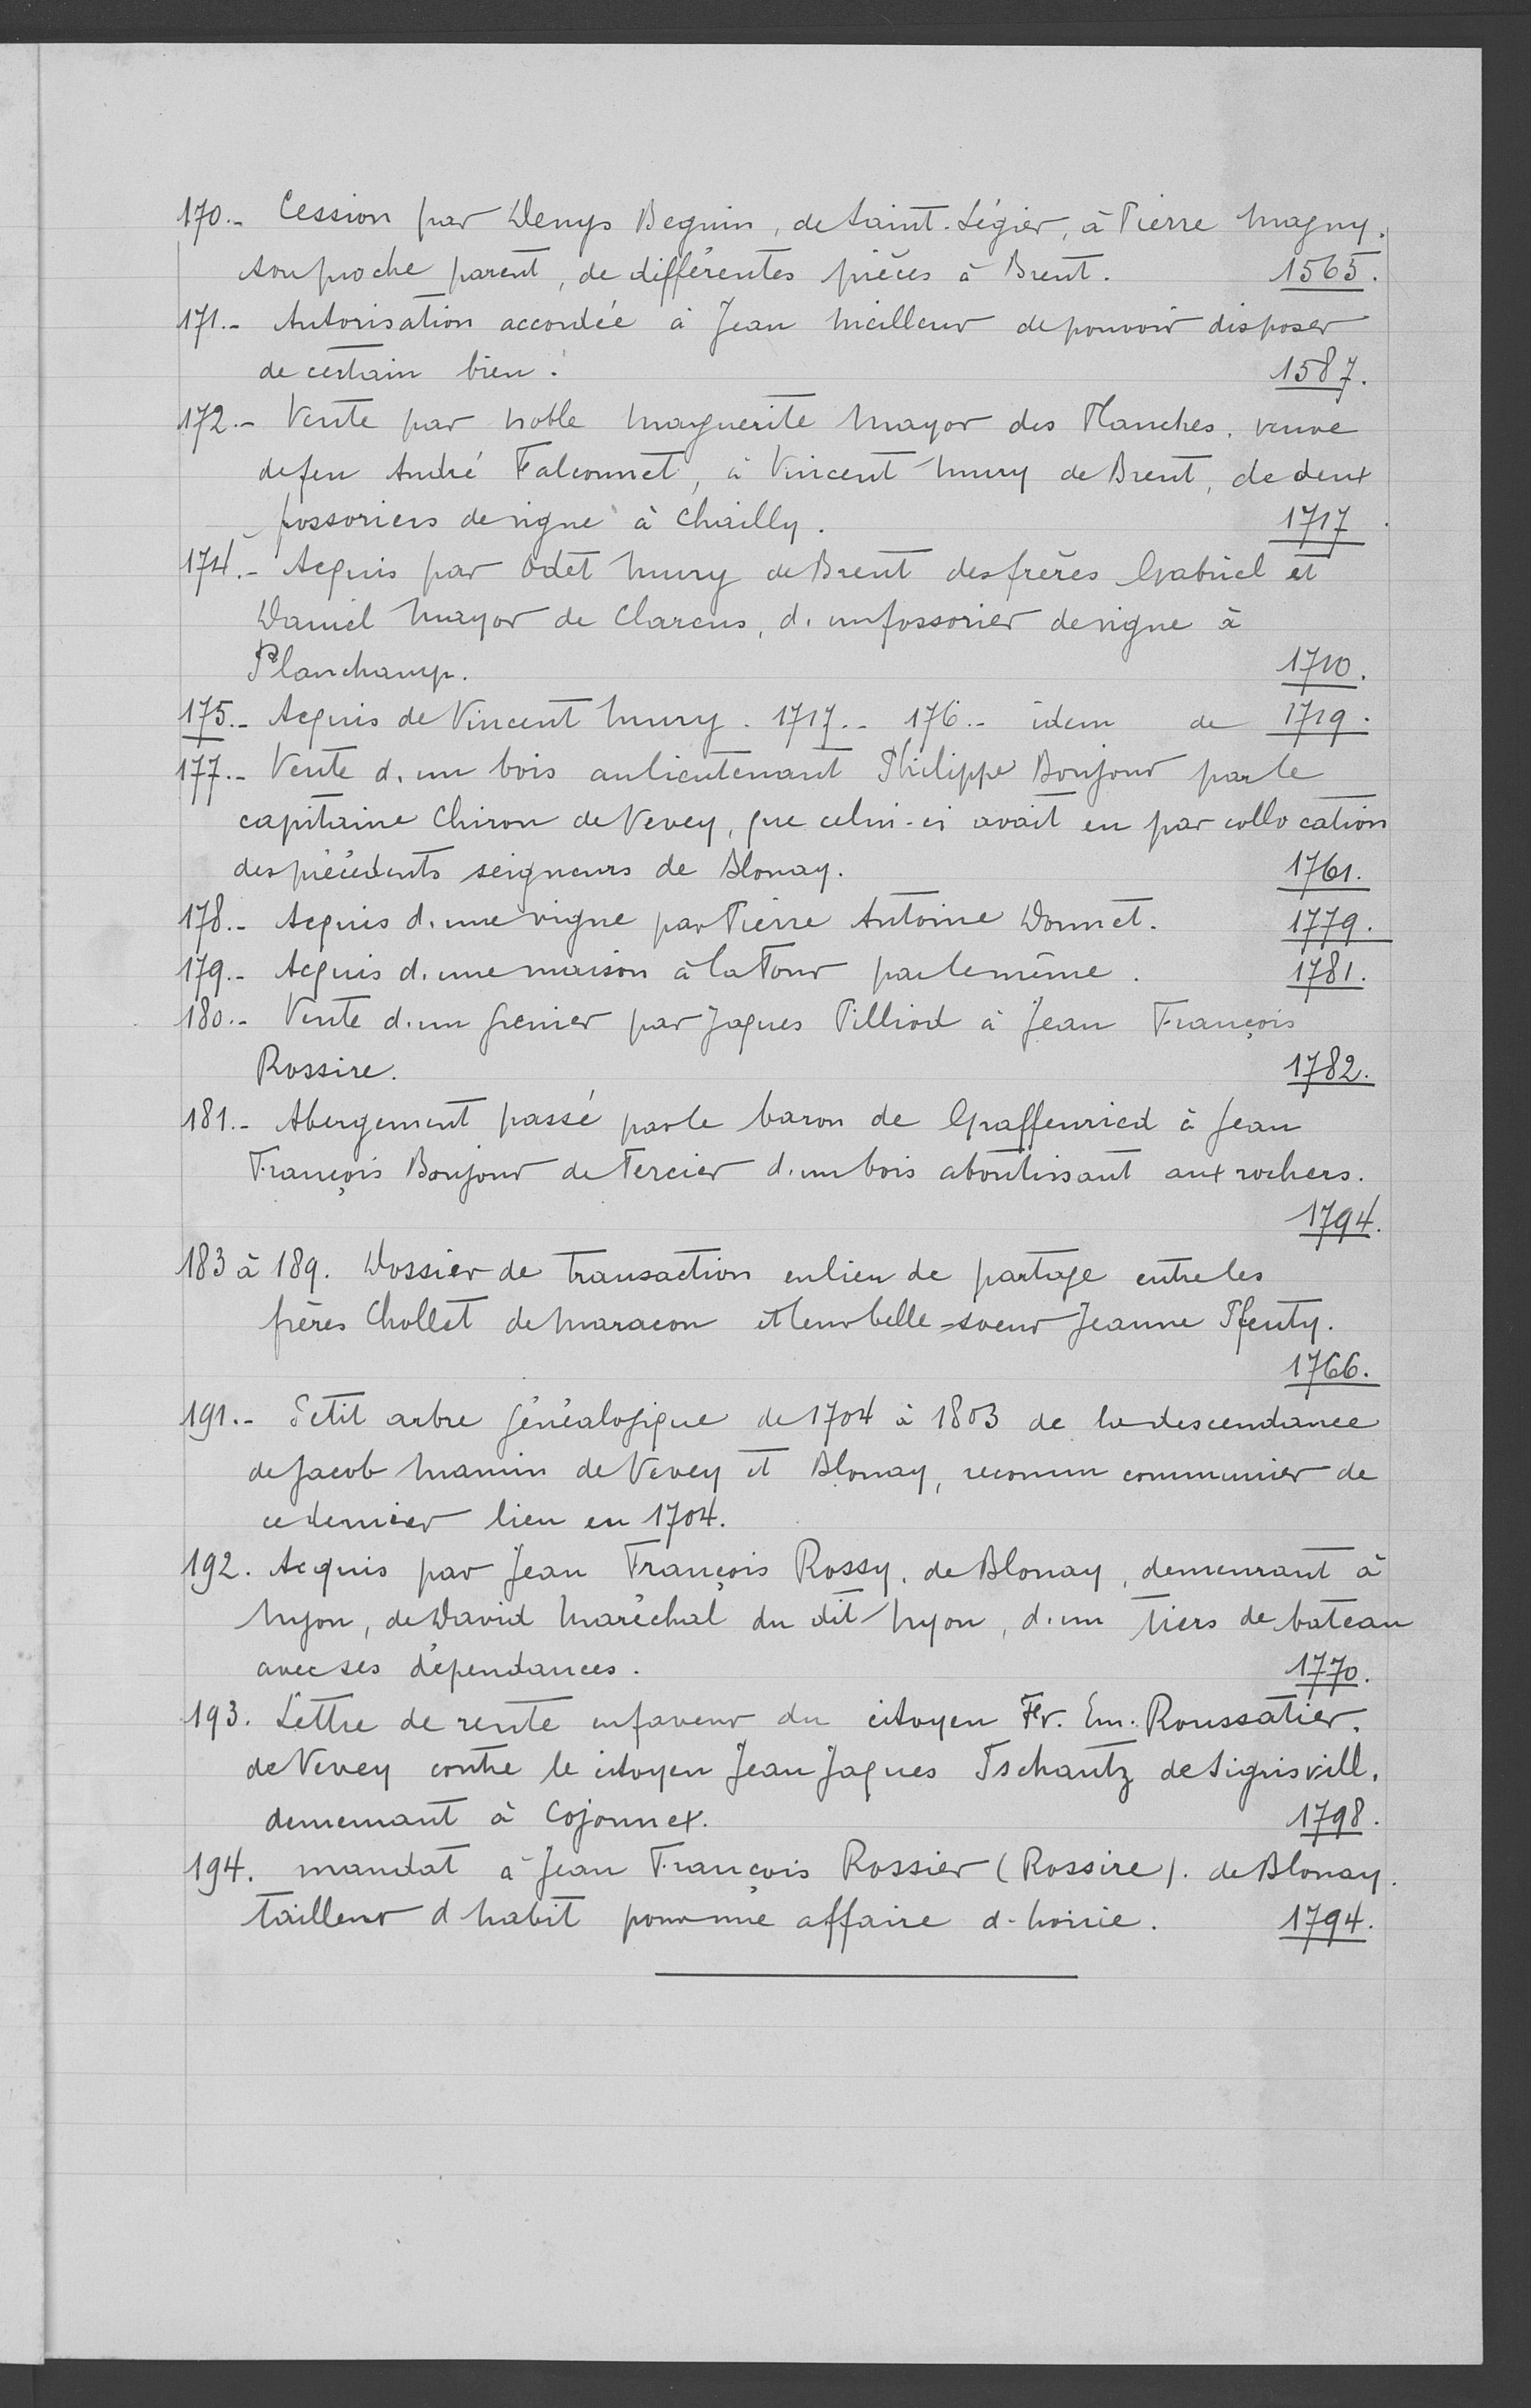 170.- Cession par Denys Beguin, de Saint-Légier, à Pierre Magny.
son proche parent, de différentes pièces à Brent. 1565.
171.- Autorisation accordée à Jean Meilleur de pouvoir disposer
de certain bien. 1587.
172.- Vente par noble Marguerite Mayor des Planches, veuve
de feu André Falconnet, à Vincent Mury de Brent, de deux
fossoriers de vigne à Chailly. 1717.
174.- Acquis par Odet Mury de Brent des frères Gabriel et
Daniel Mayor de Clarens, d'un fossorier de vigne à
Planchamp. 1710.
175.- Acquis de Vincent Mury. 1717.- 176.- idem de 1719.
177.- Vente d'un bois au lieutenant Philippe Bonjour par le
capitaine Chiron de Vevey, que celui-ci avait eu par collocation
des précédents seigneurs de Blonay. 1761.
178.- Acquis d'une vigne par Pierre Antoine Donnet. 1779.
179.- Acquis d'une maison à la Tour par le même. 1781.
180.- Vente d'un grenier par Jaques Pilliod à Jean François
Rossire. 1782.
181.- Abergement passé par le baron de Graffenried à Jean
François Bonjour de Tercier d'un bois aboutissant aux rochers.
1794.
183 à 189. Dossier de transaction en lieu de partage entre les
frères Chollet de Maracon et leur belle-soeur Jeanne Pfenty.
1766.
191.- Petit arbre généalogique de 1704 à 1803 de la descendance
de Jacob Mamin de Vevey et Blonay, reconnu communier de
ce dernier lieu en 1704.
192. Acquis par Jean François Rossy, de Blonay, demeurant à
Nyon, de David Maréchal du dit Nyon, d'un tiers de bateau
avec ses dépendances. 1770.
193. Lettre de rente en faveur du citoyen Fr. Em. Roussatier,
de Vevey contre le citoyen Jean Jaques Tschantz de Sigrisvill,
demeurant à Cojonnex. 1798.
194. mandat à Jean François Rossier (Rossire). de Blonay.
tailleur d'habit pour une affaire d'hoirie. 1794.